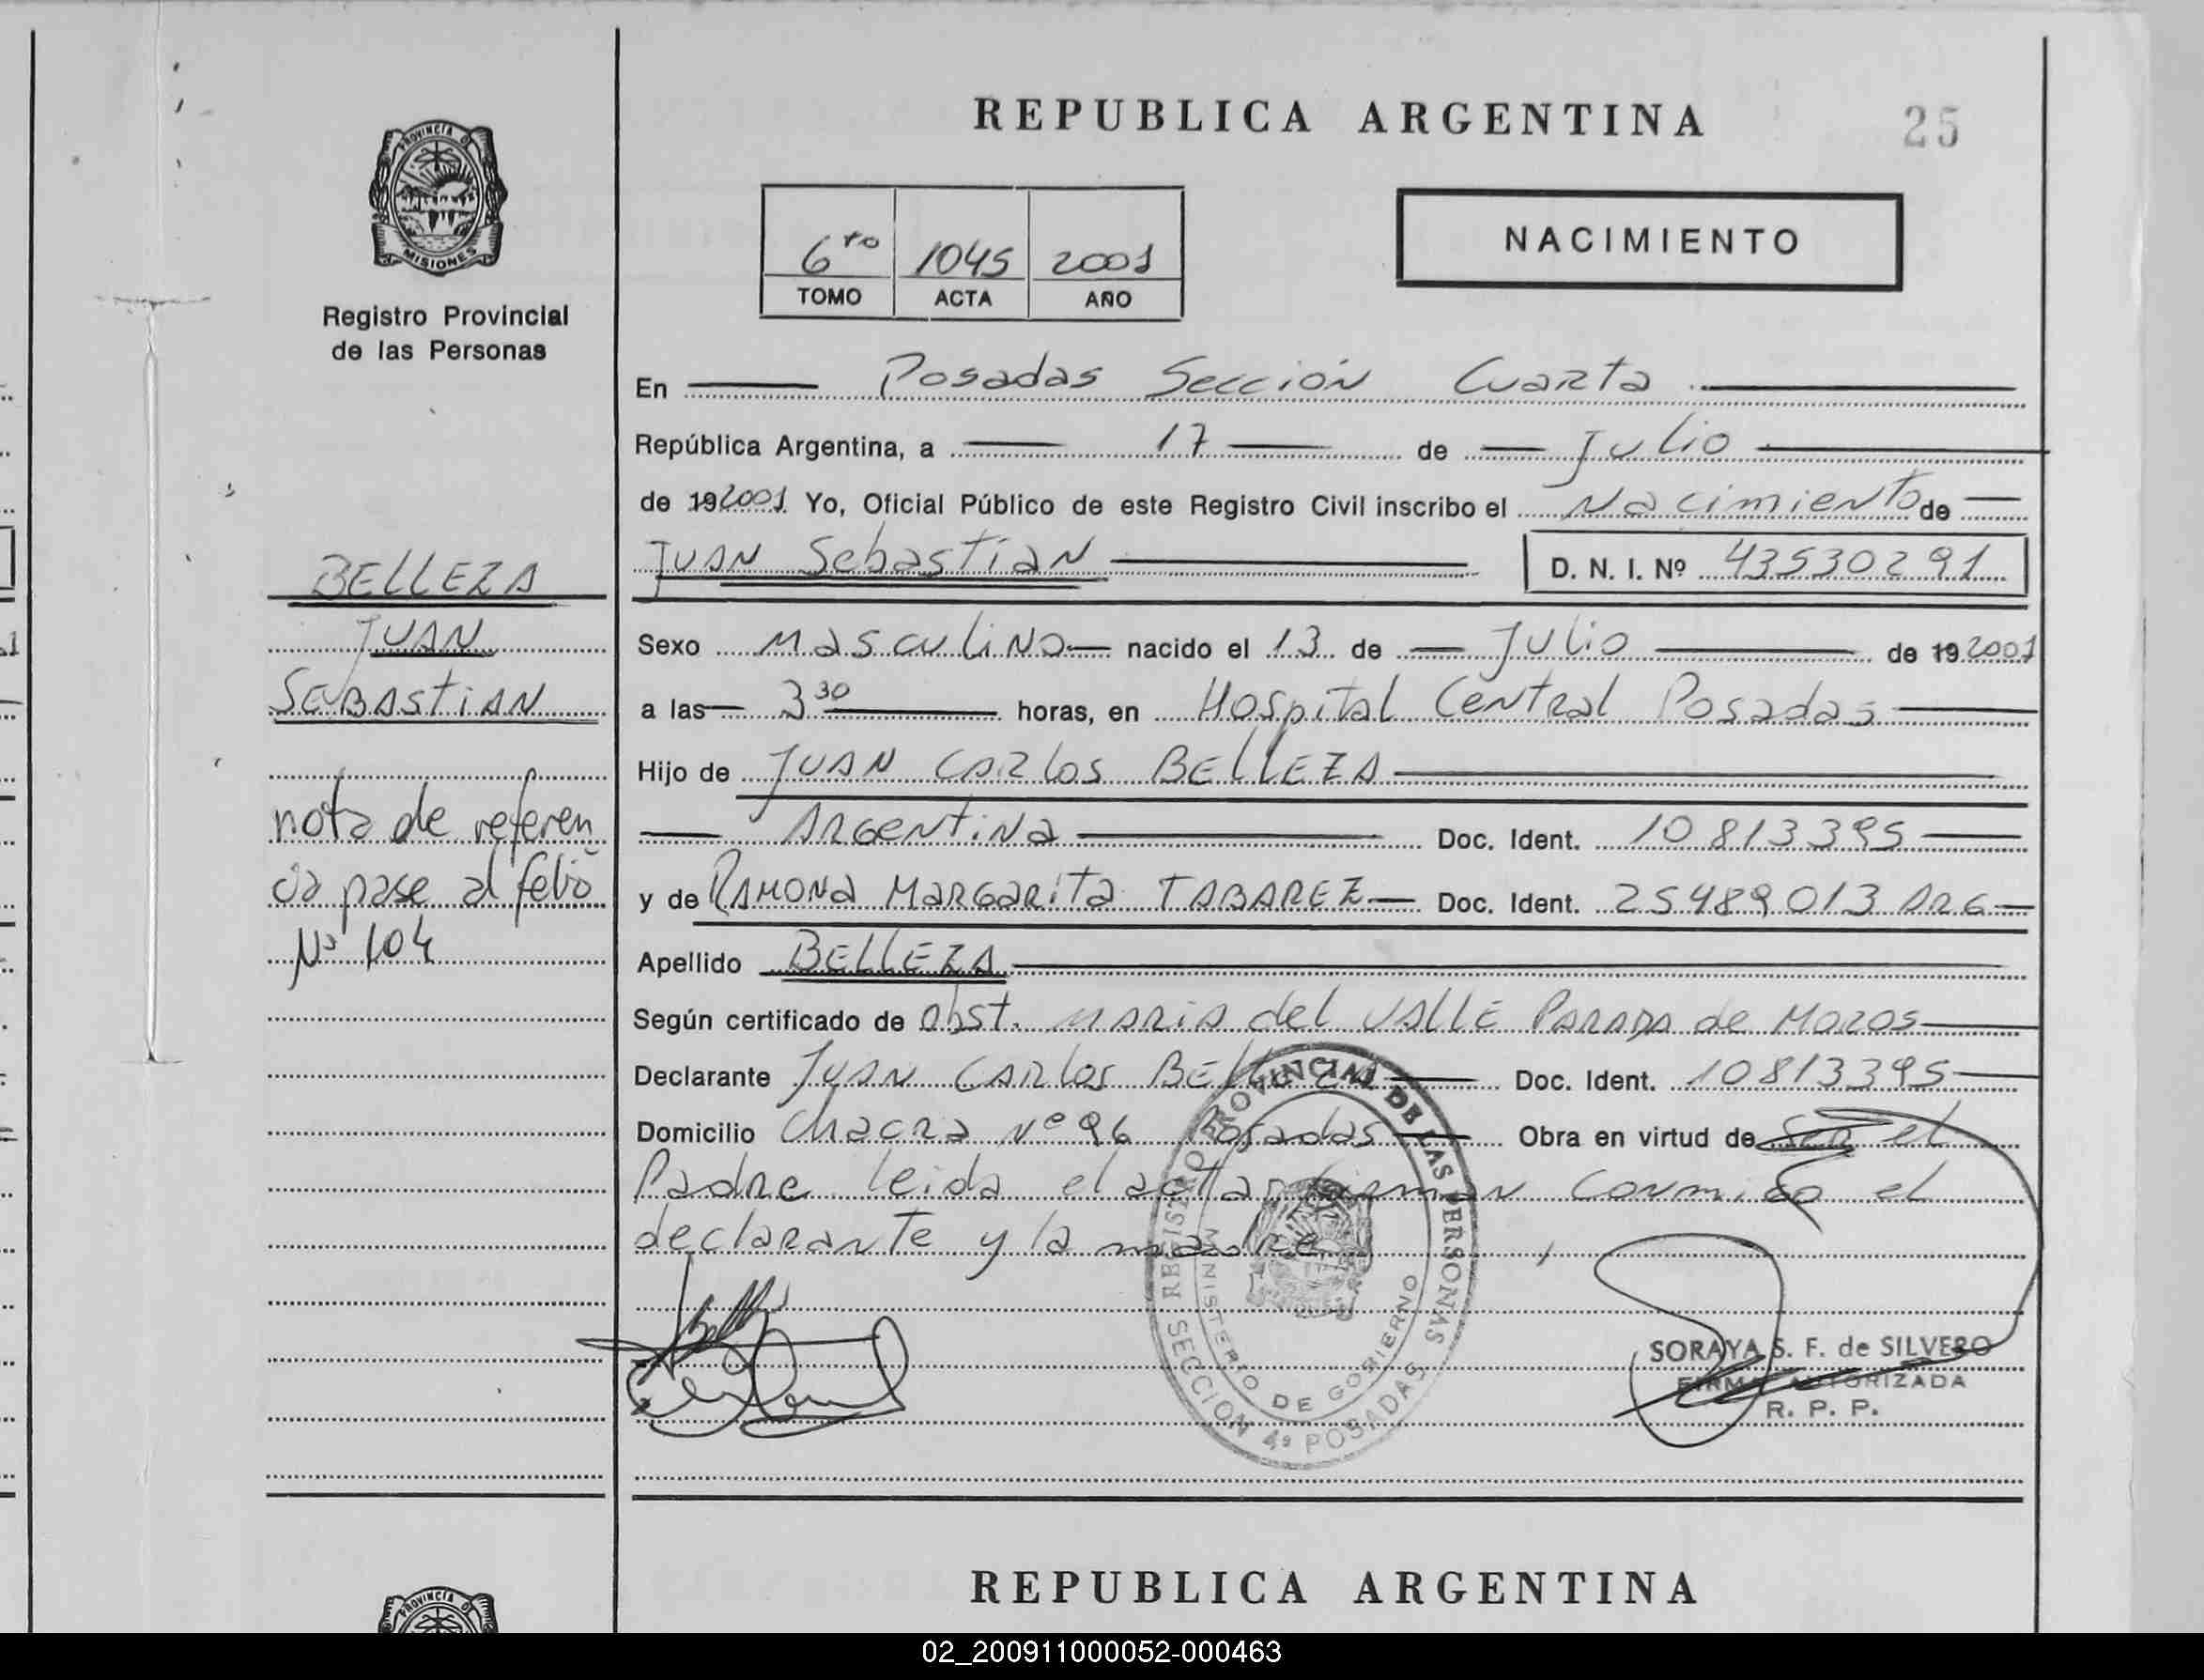 REPUBLICA ARGENTINA
25
PROVINCIA DE MISIONES
Registro Provincial
de las Personas
6to 1045 2001
TOMO ACTA AÑO
NACIMIENTO
En Posadas Sección Cuarta
República Argentina, a 17 de Julio
de 192001 Yo, Oficial Público de este Registro Civil inscribo el Nacimiento de
JUAN SebastiaN
D. N. I. Nº 43530291
BELLEZA
JUAN
SEBASTiAN
Sexo MasculiNo nacido el 13 de Julio de 192001
a las 3 30 horas, en Hospital Central Posadas
Hijo de JUAN CARlos BELLEZA
ArgentiNa Doc. Ident. 10813395
y de RAMONa MARGARiTa TABAREZ Doc. Ident. 25489013 ARG
Apellido BELLEZA
Según certificado de Obst. MARiA del VALLE PARADA de Mozos
Declarante JUAN CARlos BELLEZA Doc. Ident. 10813395
Domicilio Chacra Nº 96 Posadas Obra en virtud de Ser el
Padre leida el acta firman conmigo el
declarante y la madre
nota de referen
cia pase al folio
Nº 104
REGISTRO PROVINCIAL DE LAS PERSONAS
MINISTERIO DE GOBIERNO
SECCION 4ª POSADAS
SORAYA S. F. de SILVERO
FIRMA AUTORIZADA
R. P. P.
REPUBLICA ARGENTINA
PROVINCIA DE
02_200911000052-000463